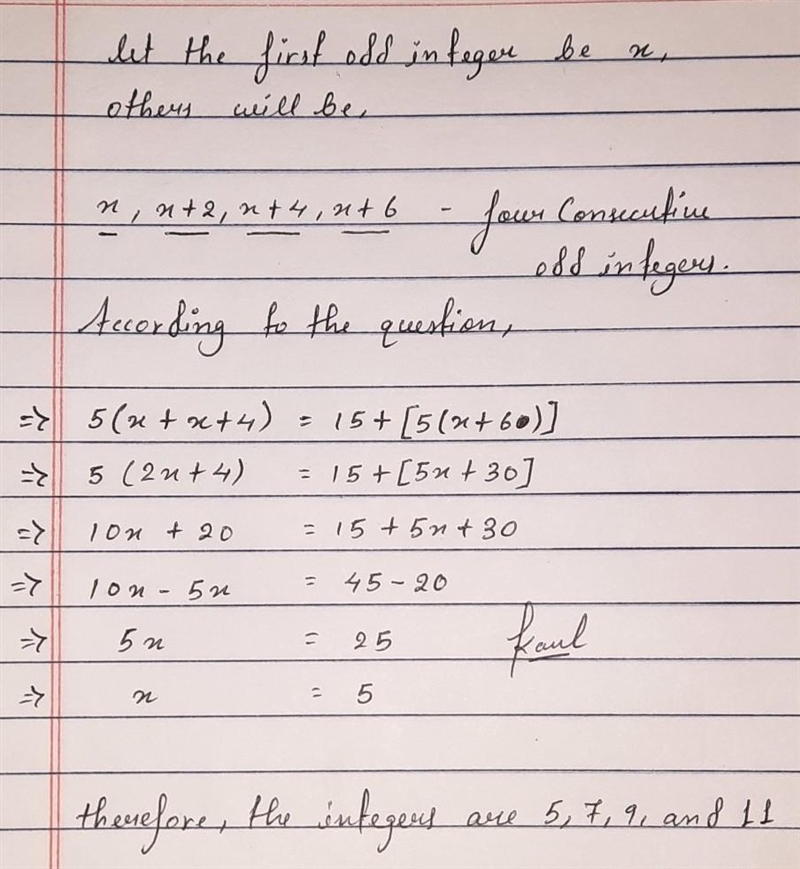 let the first odd integer be x,
others will be,
x, x+2, x+4, x+6 - four Consecutive
odd integers.
According to the question,
=> 5(x + x+4) = 15+[5(x+6)]
=> 5 (2x+4) = 15+[5x+30]
=> 10x + 20 = 15 +5x+30
=> 10x - 5x = 45-20
=> 5x = 25
kaul
=> x = 5
therefore, the integers are 5, 7, 9, and 11